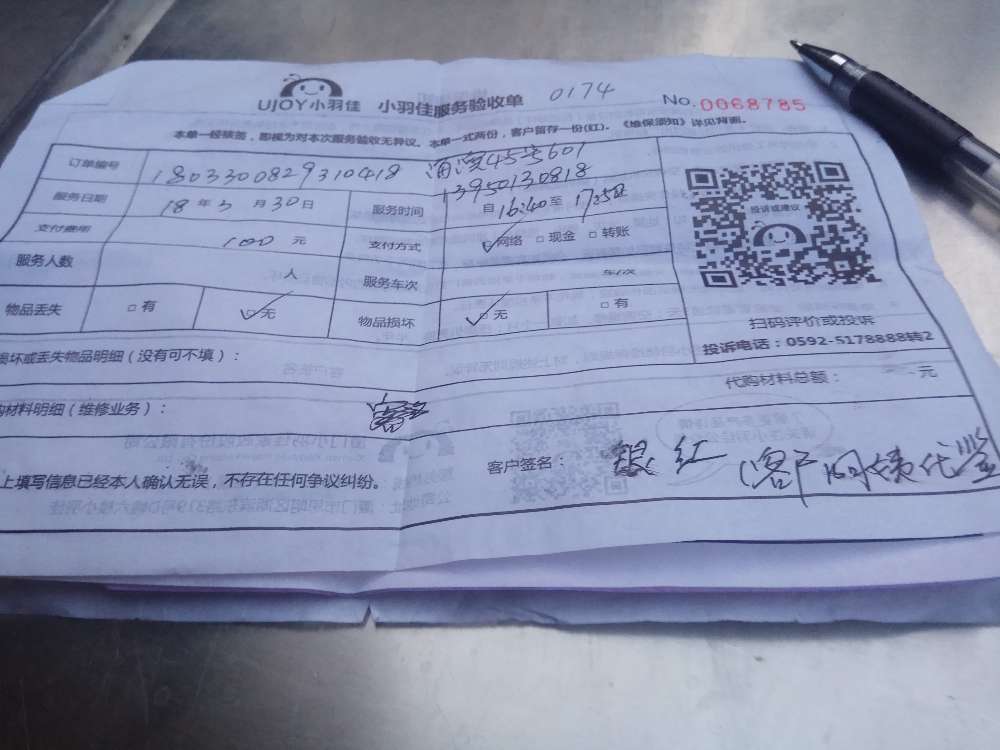 UJOY小羽佳 小羽佳服务验收单 0174 No.0068785
本单一经核签，即视为对本次服务验收无异议。本单一式两份，客户留存一份(红)。《维保须知》详见背面。
订单编号 1803300829310418 45号601
13950130818
服务日期 18年3月30日 服务时间 自16:40至17:25止
支付费用 100元 支付方式 ✓网络 □现金 □转账
服务人数 人 服务车次 车/次
物品丢失 □有 ✓无 物品损坏 ✓无 □有
投诉或建议
扫码评价或投诉
投诉电话：0592-5178888转2
损坏或丢失物品明细（没有可不填）：
代购材料总额： 元
购材料明细（维修业务）：
上填写信息已经本人确认无误，不存在任何争议纠纷。 客户签名： 银红 (客户网续代签